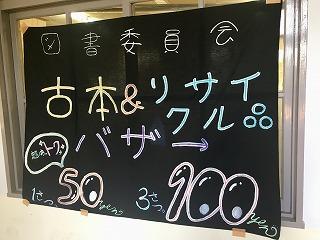 図書委員会
古本&リサイクル品
バザー→
1さつ 50yen
3さつ 100yen